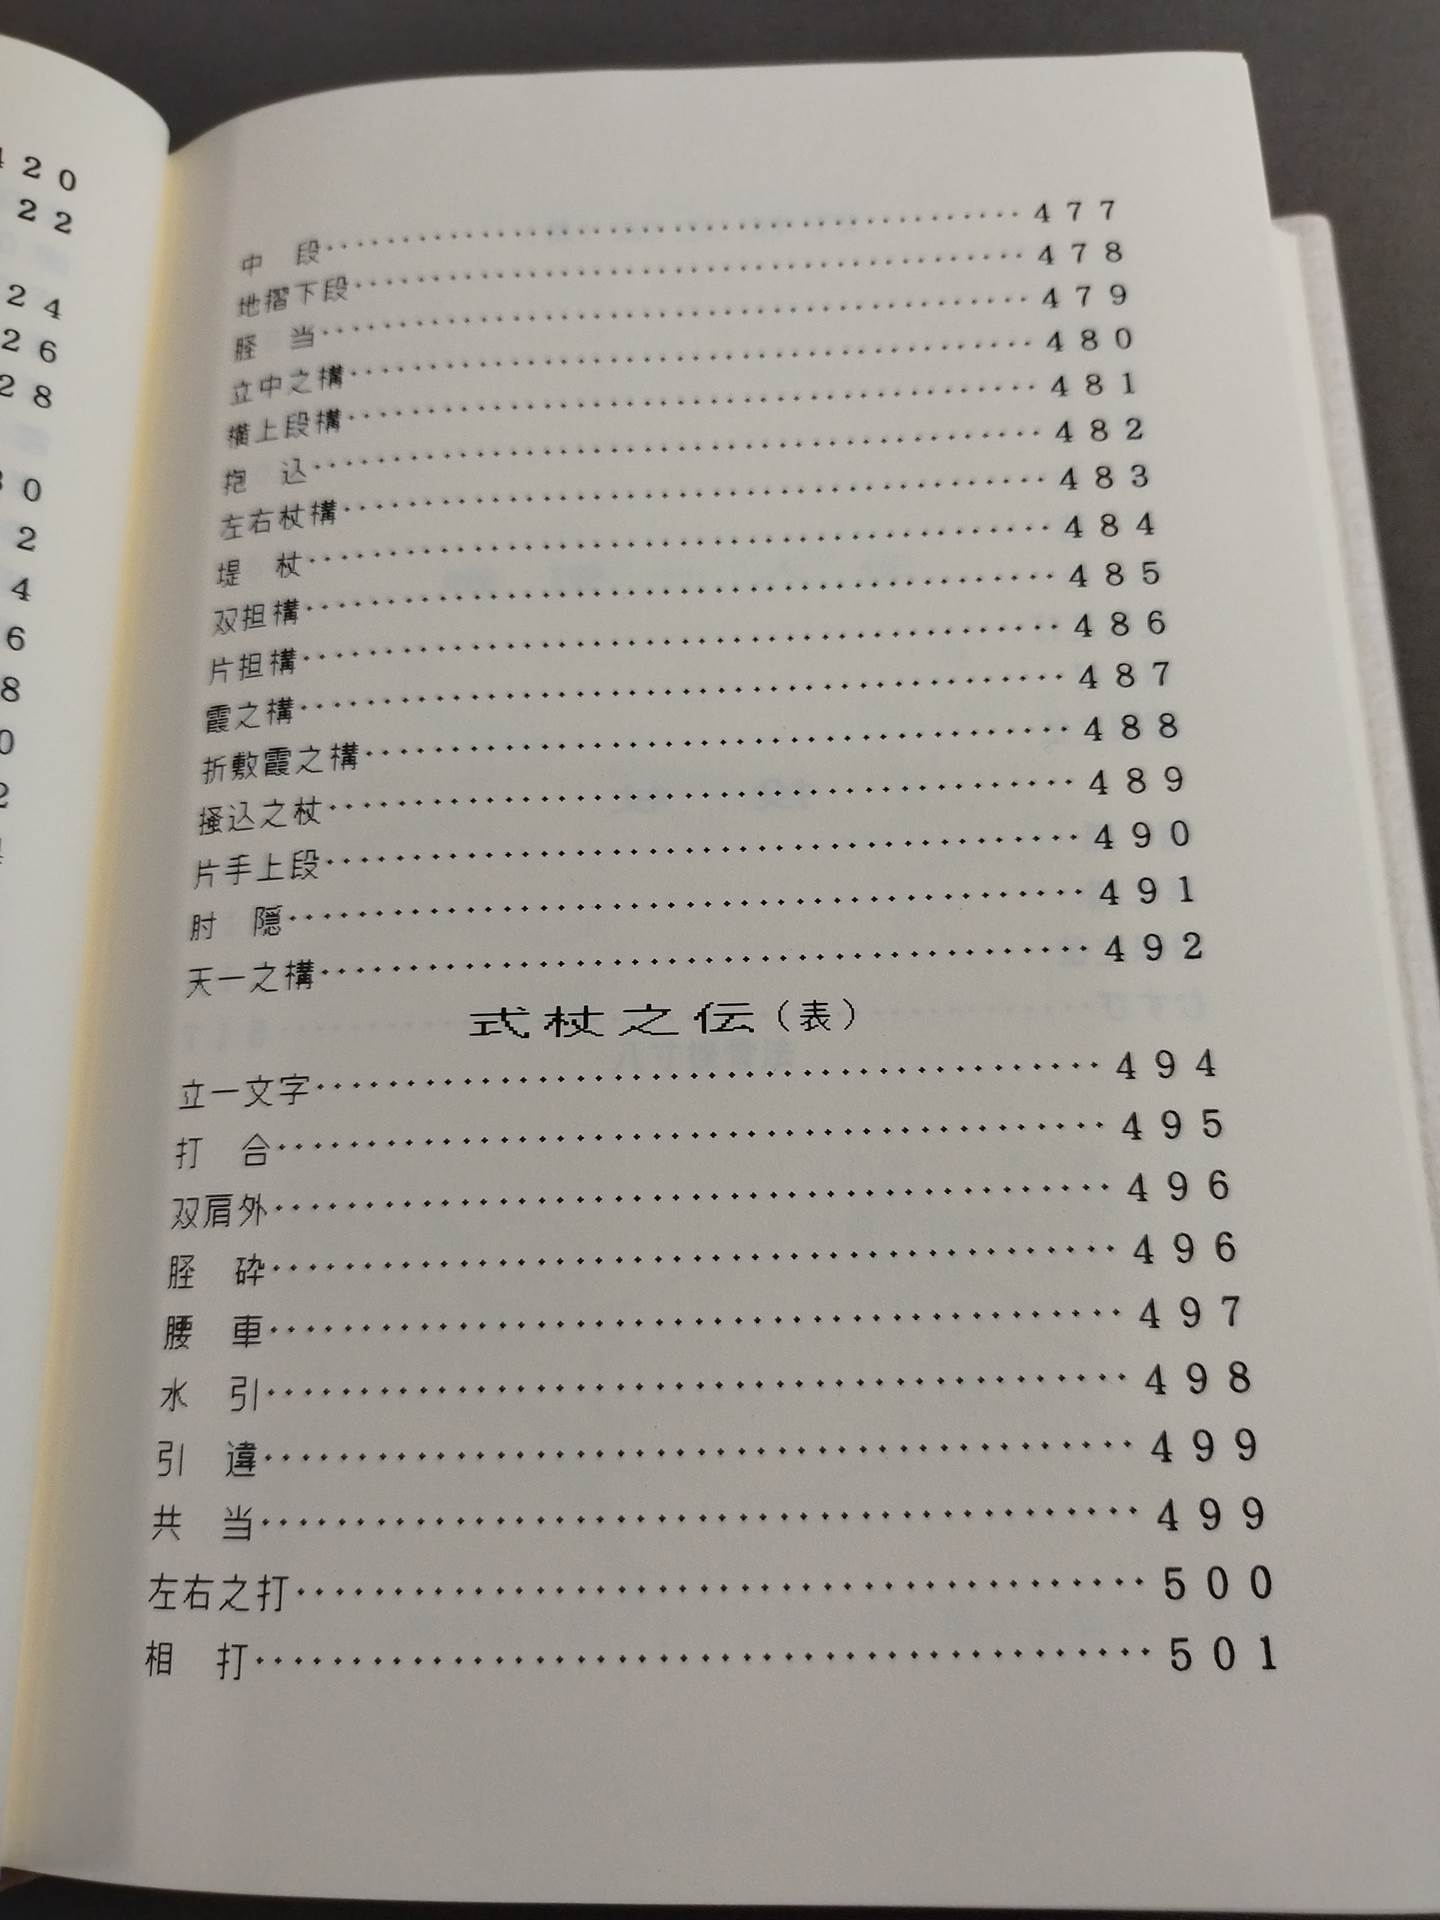 中　段・・・・・・477
地摺下段・・・・・・478
脛　当・・・・・・479
立中之構・・・・・・480
横上段構・・・・・・481
抱　込・・・・・・482
左右杖構・・・・・・483
堤　杖・・・・・・484
双担構・・・・・・485
片担構・・・・・・486
霞之構・・・・・・487
折敷霞之構・・・・・・488
掻込之杖・・・・・・489
片手上段・・・・・・490
肘　隠・・・・・・491
天一之構・・・・・・492
式杖之伝（表）
立一文字・・・・・・494
打　合・・・・・・495
双肩外・・・・・・496
脛　砕・・・・・・496
腰　車・・・・・・497
水　引・・・・・・498
引　違・・・・・・499
共　当・・・・・・499
左右之打・・・・・・500
相　打・・・・・・501